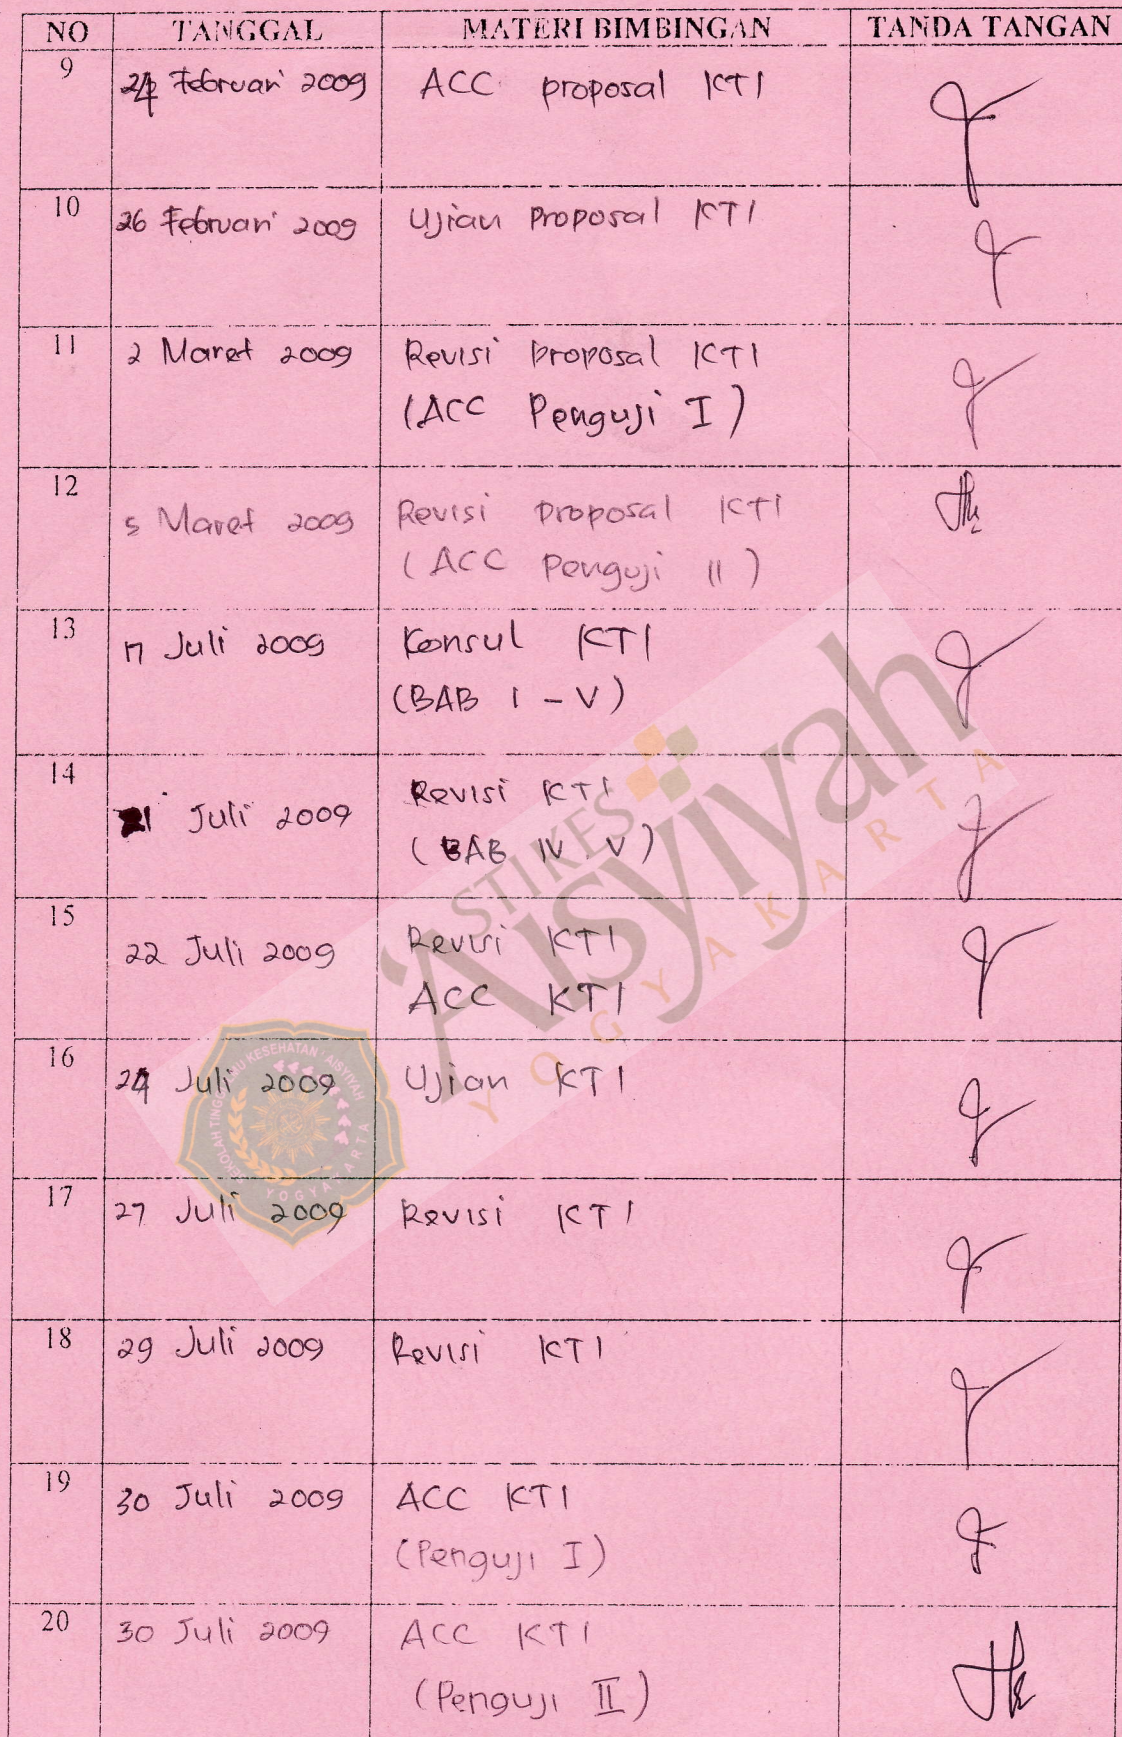 NO TANGGAL MATERI BIMBINGAN TANDA TANGAN
9 24 Februari 2009 ACC proposal KTI
10 26 Februari 2009 Ujian proposal KTI
11 2 Maret 2009 Revisi proposal KTI
(ACC Penguji I)
12 5 Maret 2009 Revisi proposal KTI
(ACC Penguji II)
13 17 Juli 2009 Konsul KTI
(BAB I - V)
14 21 Juli 2009 Revisi KTI
(BAB IV, V)
15 22 Juli 2009 Revisi KTI
ACC KTI
16 24 Juli 2009 Ujian KTI
17 27 Juli 2009 Revisi KTI
18 29 Juli 2009 Revisi KTI
19 30 Juli 2009 ACC KTI
(Penguji I)
20 30 Juli 2009 ACC KTI
(Penguji II)
STIKES
'Aisyiyah
YOGYAKARTA
SEKOLAH TINGGI ILMU KESEHATAN 'AISYIYAH
YOGYAKARTA